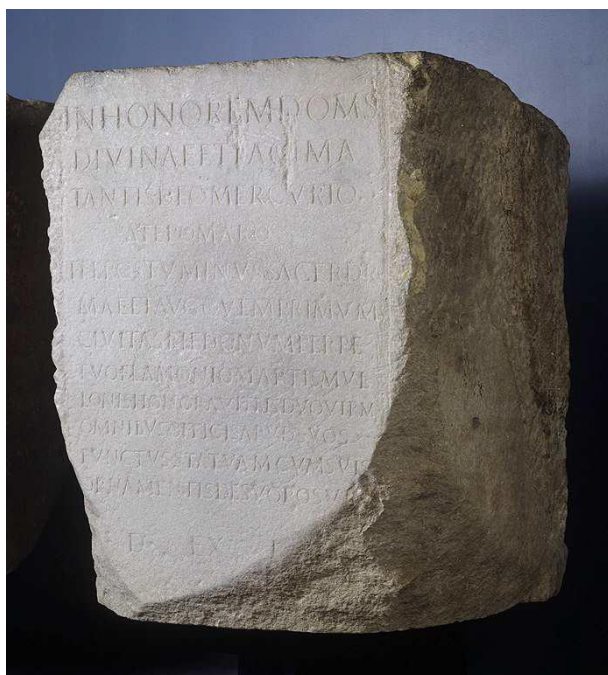 IN HONOREM DOMS
DIVINAE ET PAGI MA
TANTIS DEO MERCVRIO
ATEPOMARO
T FL POSTVMINVS SACERD R
MAE ET AVG QVEM PRIMVM
CIVITAS RIEDONVM PERPE
TVO FLAMONIO MARTIS MVL
HONORAVIT BIS DVOVIR
OMNIBVS OFFICIS APVD SVOS
FVNCTVS STATVAM CVM SVIS
ORNAMENTIS DE SVO POSVIT
D EX